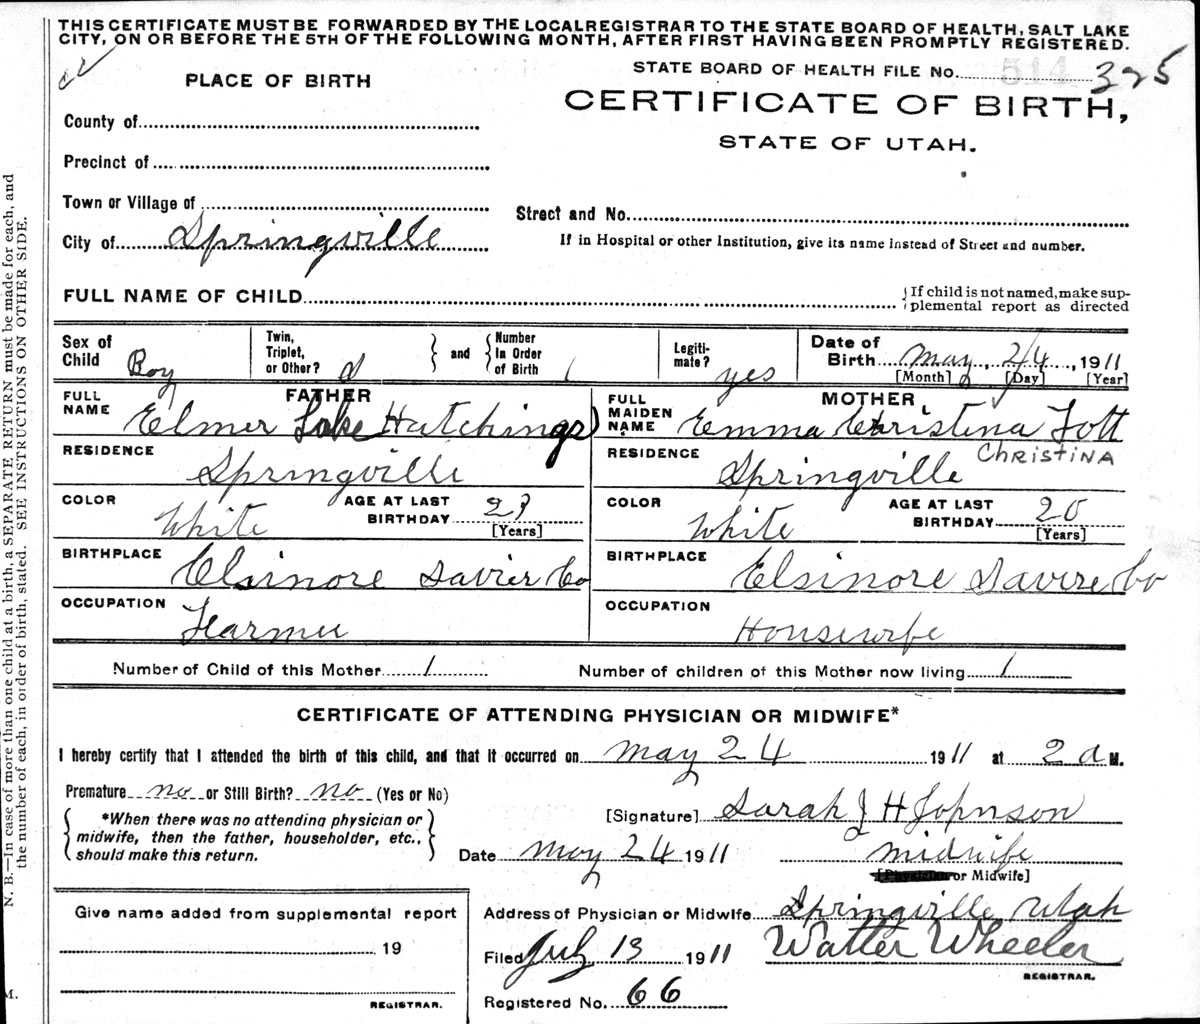 THIS CERTIFICATE MUST BE FORWARDED BY THE LOCAL REGISTRAR TO THE STATE BOARD OF HEALTH, SALT LAKE
CITY, ON OR BEFORE THE 5TH OF THE FOLLOWING MONTH, AFTER FIRST HAVING BEEN PROMPTLY REGISTERED.
STATE BOARD OF HEALTH FILE No. 514 325
PLACE OF BIRTH
CERTIFICATE OF BIRTH,
STATE OF UTAH.
County of
Precinct of
Town or Village of
Street and No.
City of Springville
If in Hospital or other Institution, give its name instead of Street and number.
FULL NAME OF CHILD
If child is not named, make sup-
plemental report as directed
Sex of Child Boy
Twin, Triplet, or Other?
and
Number In Order of Birth 1
Legiti-mate? yes
Date of Birth May 24, 1911
[Month] [Day] [Year]
FATHER
FULL NAME Elmer Hutchings
RESIDENCE Springville
COLOR White
AGE AT LAST BIRTHDAY 23
[Years]
BIRTHPLACE Elsinore Savier Co
OCCUPATION Farmer
MOTHER
FULL MAIDEN NAME Emma Christina Tott
CHRISTINA
RESIDENCE Springville
COLOR White
AGE AT LAST BIRTHDAY 20
[Years]
BIRTHPLACE Elsinore Savire Co
OCCUPATION Housewife
Number of Child of this Mother 1
Number of children of this Mother now living 1
CERTIFICATE OF ATTENDING PHYSICIAN OR MIDWIFE*
I hereby certify that I attended the birth of this child, and that it occurred on May 24 1911 at 2 a M.
Premature no or Still Birth? no (Yes or No)
*When there was no attending physician or
midwife, then the father, householder, etc.,
should make this return.
[Signature] Sarah J H Johnson
Date May 24 1911
midwife
[Physician or Midwife]
Give name added from supplemental report
19
REGISTRAR.
Address of Physician or Midwife Springville Utah
Filed July 13 1911
Walter Wheeler
REGISTRAR.
Registered No. 66
N. B.—In case of more than one child at a birth, a SEPARATE RETURN must be made for each, and
the number of each, in order of birth, stated. SEE INSTRUCTIONS ON OTHER SIDE.
M.